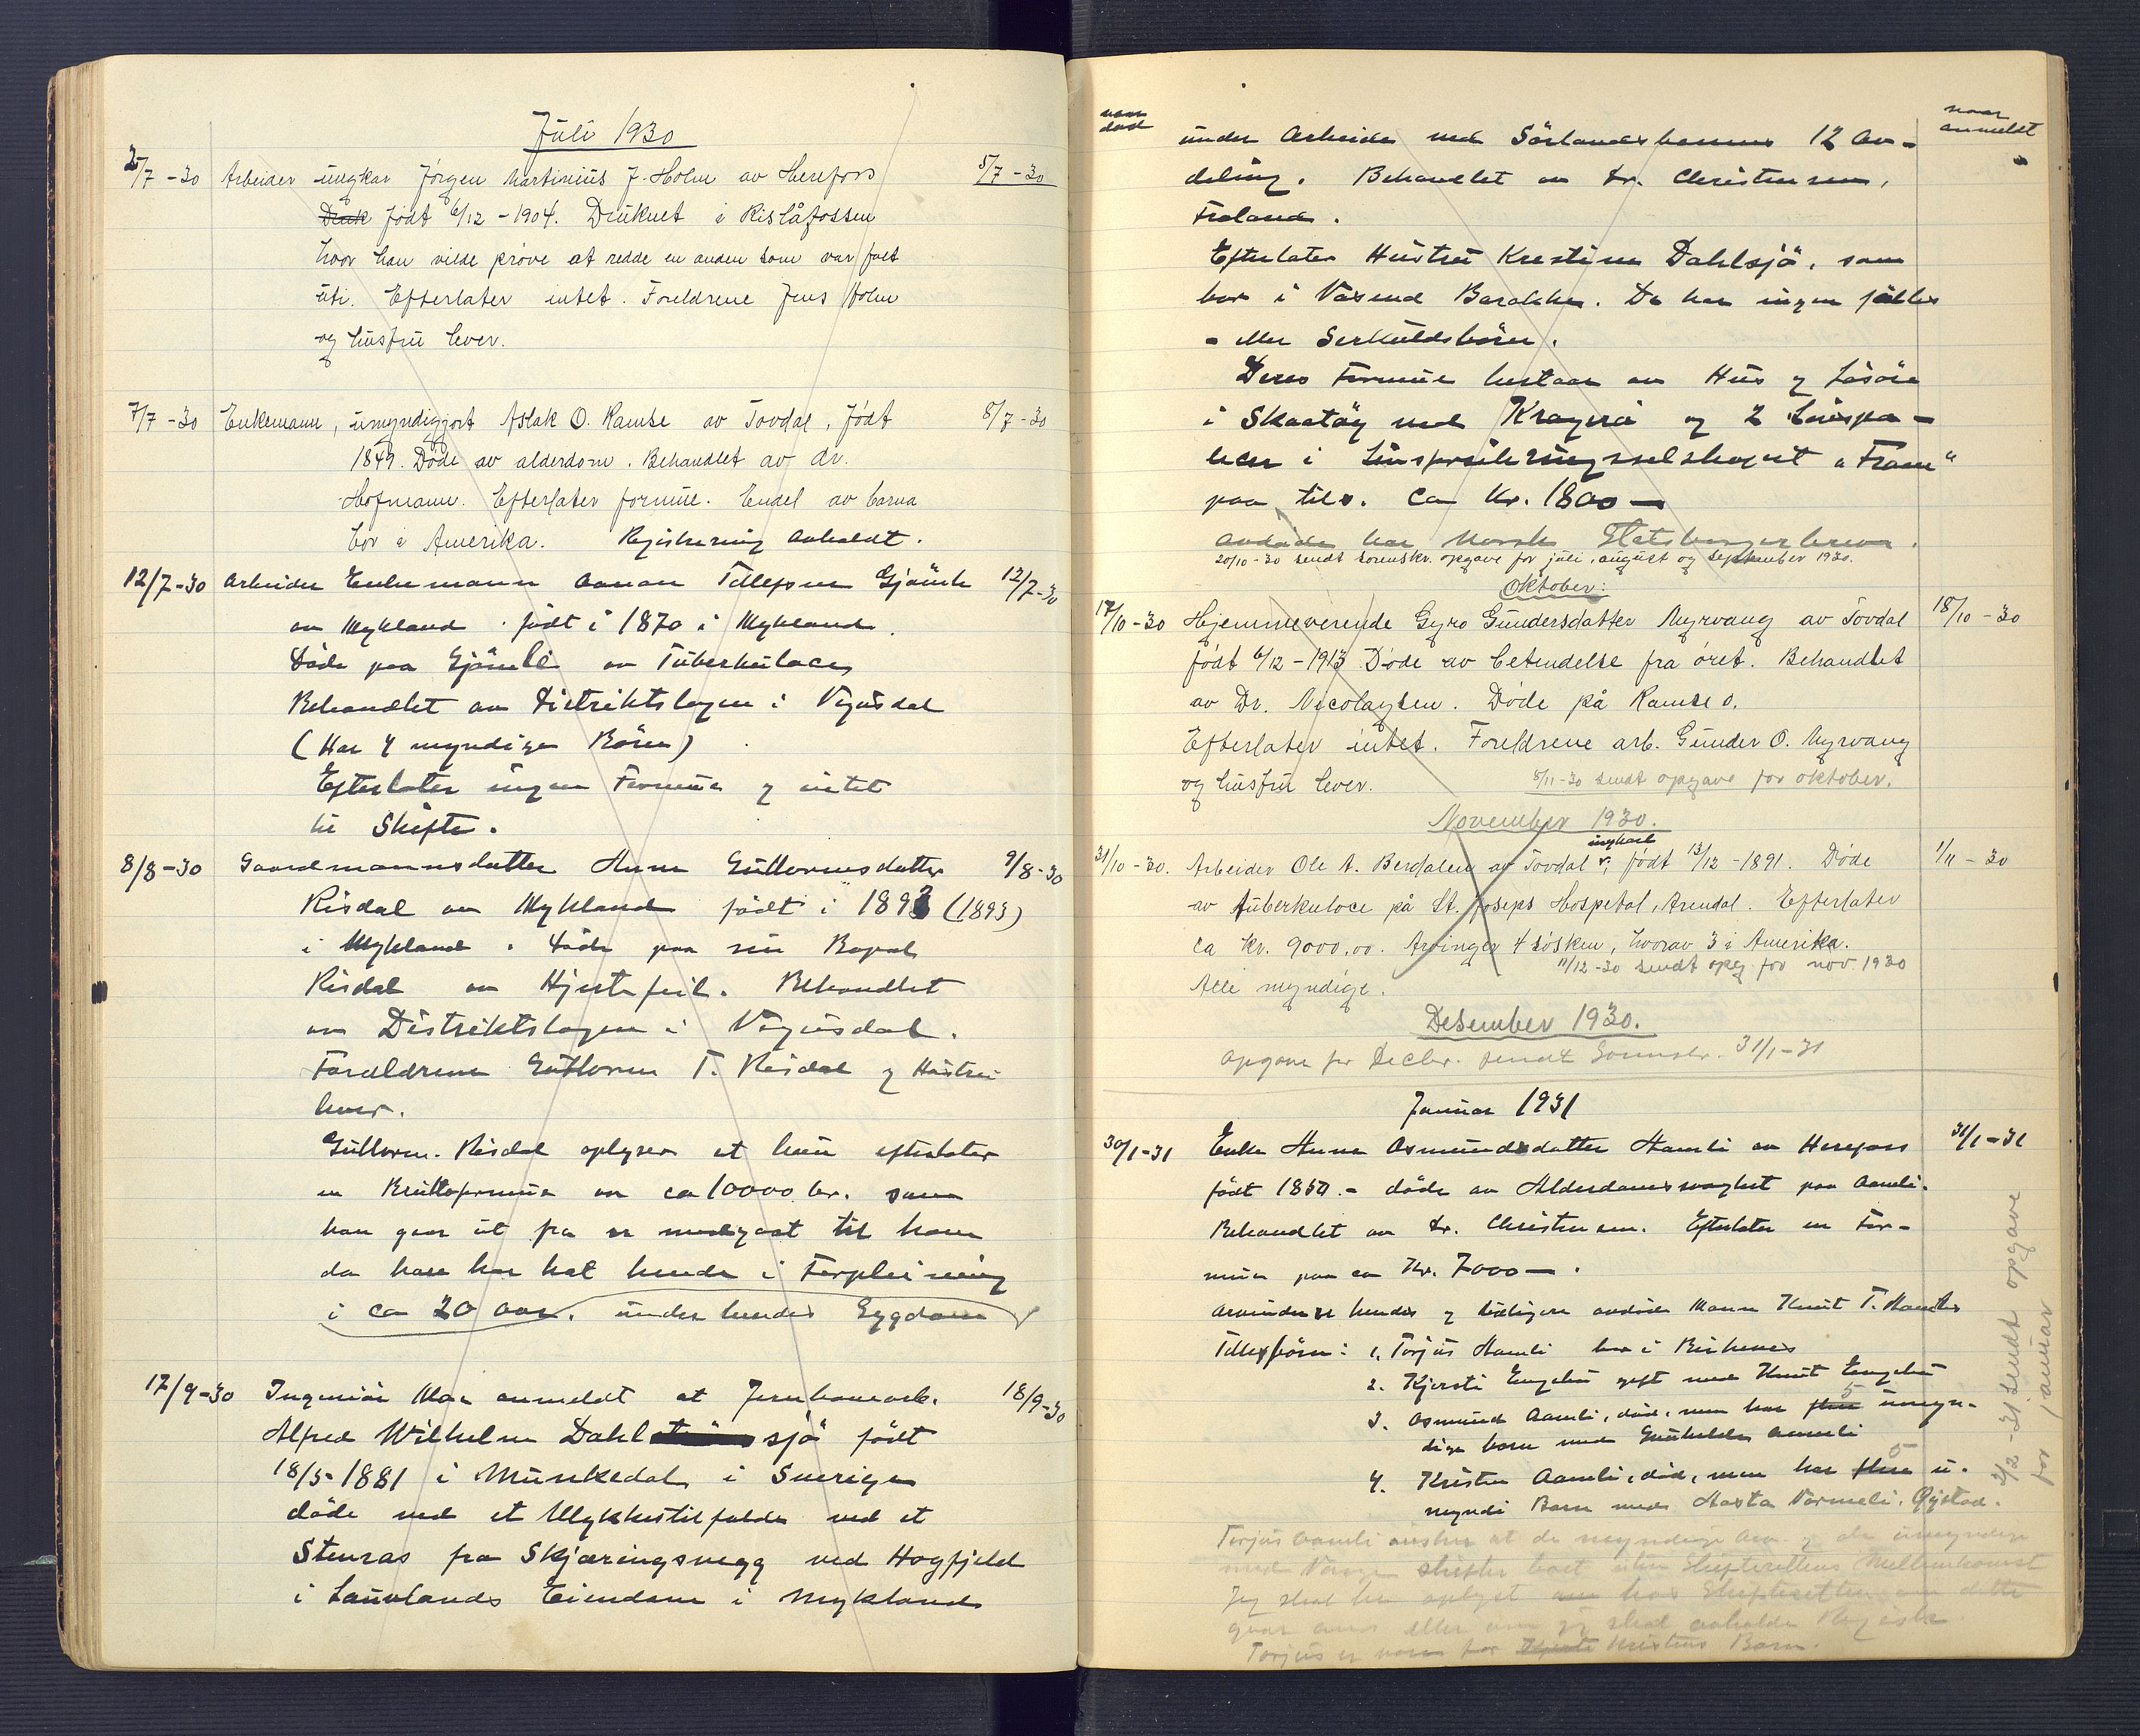 Juli 1930
2/7 - 30 Arbeider ungkar Jörgen Martinius J. Holm av Herefoss 5/7 - 30
Druk født 6/12 - 1904. Druknet i Rislåfossen
hvor han vilde prøve at redde en anden som var falt
uti. Efterlater intet. Foreldrene Jens Holm
og husfru lever.
7/7 - 30 Enkemann, umyndiggjort Aslak O. Ramse av Tovdal, født 8/7 - 30
1849. Døde av alderdom. Behandlet av dr.
Hofmann. Efterlater formue. Endel av barna
bor i Amerika. Registrering avholdt.
12/7 - 30 Arbeider Enkemann Aanon Tellefsen Gjäumli 12/7 - 30
av Mykland. født i 1870 i Mykland.
Döde paa Gjäumli av Tuberkuloce
Behandlet av Distriktslægen i Vegusdal
(Har 4 myndige Börn)
Efterlater ingen Formue og intet
til Skifte.
8/8 - 30 Gaardmannsdatter Anne Guttormsdatter 9/8 - 30
Risdal av Mykland født i 1893 (1893)
i Mykland. Döde paa sin Bopæl
Risdal av Hjertefeil. Behandlet
av Distriktslægen i Vegusdal.
Foreldrene Guttorm T. Risdal og Hustru
lever.
Guttorm Risdal oplyser at hun efterlater
en Bruttoformue av ca 10000 kr. som
han gaar ut fra er medgaat til ham
da han har hat hende i Forpleining
i ca 20 aar. under hendes Sygdom
17/9 - 30 Ingeniör Moe anmeldt at Jernbanearb. 18/9 - 30
Alfred Wilhelm Dahlsjö født
18/5 - 1881 i Munkedal i Sverige
döde ved et Ulykkestilfelde ved et
Stenras fra Skjæringsvegg ved Hogfjeld
i Lauvlands Eiendom i Mykland
naar død
naar anmeldt
under Arbeide ved Sörlandsbanens 12 Av-
deling. Behandlet av Dr. Christensen,
Froland.
Efterlater Hustru Kristine Dahlsjö, som
bor i Barakke. De har ingen fælles
- eller Serkuldsbörn.
Deres Formue bestaar av Hus og Lösöre
i Skaatöy ved Kragerö og 2 Livspo-
licer i Livsforsikringsselskapet "Fram"
paa tils. ca Kr. 1800 -
avdøde har Norsk Statsborgerbrev.
20/10 - 30 sendt sorenskr. opgave for juli, august og september 1930.
Oktober:
17/10 - 30 Hjemmeverende Gyro Gundersdatter Myrvang av Tovdal 18/10 - 30
født 6/12 - 1913 Døde av betendelse fra øret. Behandlet
av Dr. Nicolaysen. Døde på Ramse o.
Efterlater intet. Foreldrene arb. Gunder O. Myrvang
og husfru lever. 8/11 - 30 sendt opgave for oktober.
November 1930.
ungkarl
31/10 - 30. Arbeider Ole A. Berdalen av Tovdal, født 13/12 - 1891. Døde 1/11 - 30
av tuberkuloce på St. Josefs Hospetal, Arendal. Efterlater
ca kr. 9000,00. Arvinger 4 søsken, hvorav 3 i Amerika.
11/12 - 30 sendt opg for nov 1930
Alle myndige.
Desember 1930.
Opgave for Decbr. sendt Sorenskr. 31/1 - 31
Januar 1931
30/1 - 31 Enke Anne Osmundsdatter Haamli av Herefoss 31/1 - 31
født 1850. - döde av Alderdomssvaghet paa Aamli.
Behandlet av Dr. Christensen. Efterlater en For-
mue paa ca Kr. 7000 - .
Arvinder er hendes og tidligere avdöde Mann Knut T. Haamlis
Fellesbörn: 1. Torjus Haamli bor i Birkenes
2. Kjersti Engebu gift med Knut Engebu
3. Osmund Aamli, död, men har flere 5 umyn-
dige barn med Aamli
4. Kristen Aamli, död, men har flere 5 u-
myndi Barn med Aasta Vormeli, Öystad.
Torjus Aamli önsker at de myndige Arv. og de umyndige
med Verge skifter boet uten Skifterettens Mellemkomst
Jeg skal ha oplyst hos Skifteretten om dette
gaar an eller om jeg skal avholde Registr.
Torjus er verge for Kristens Barn.
2/2 - 31 sendt opgave
for januar